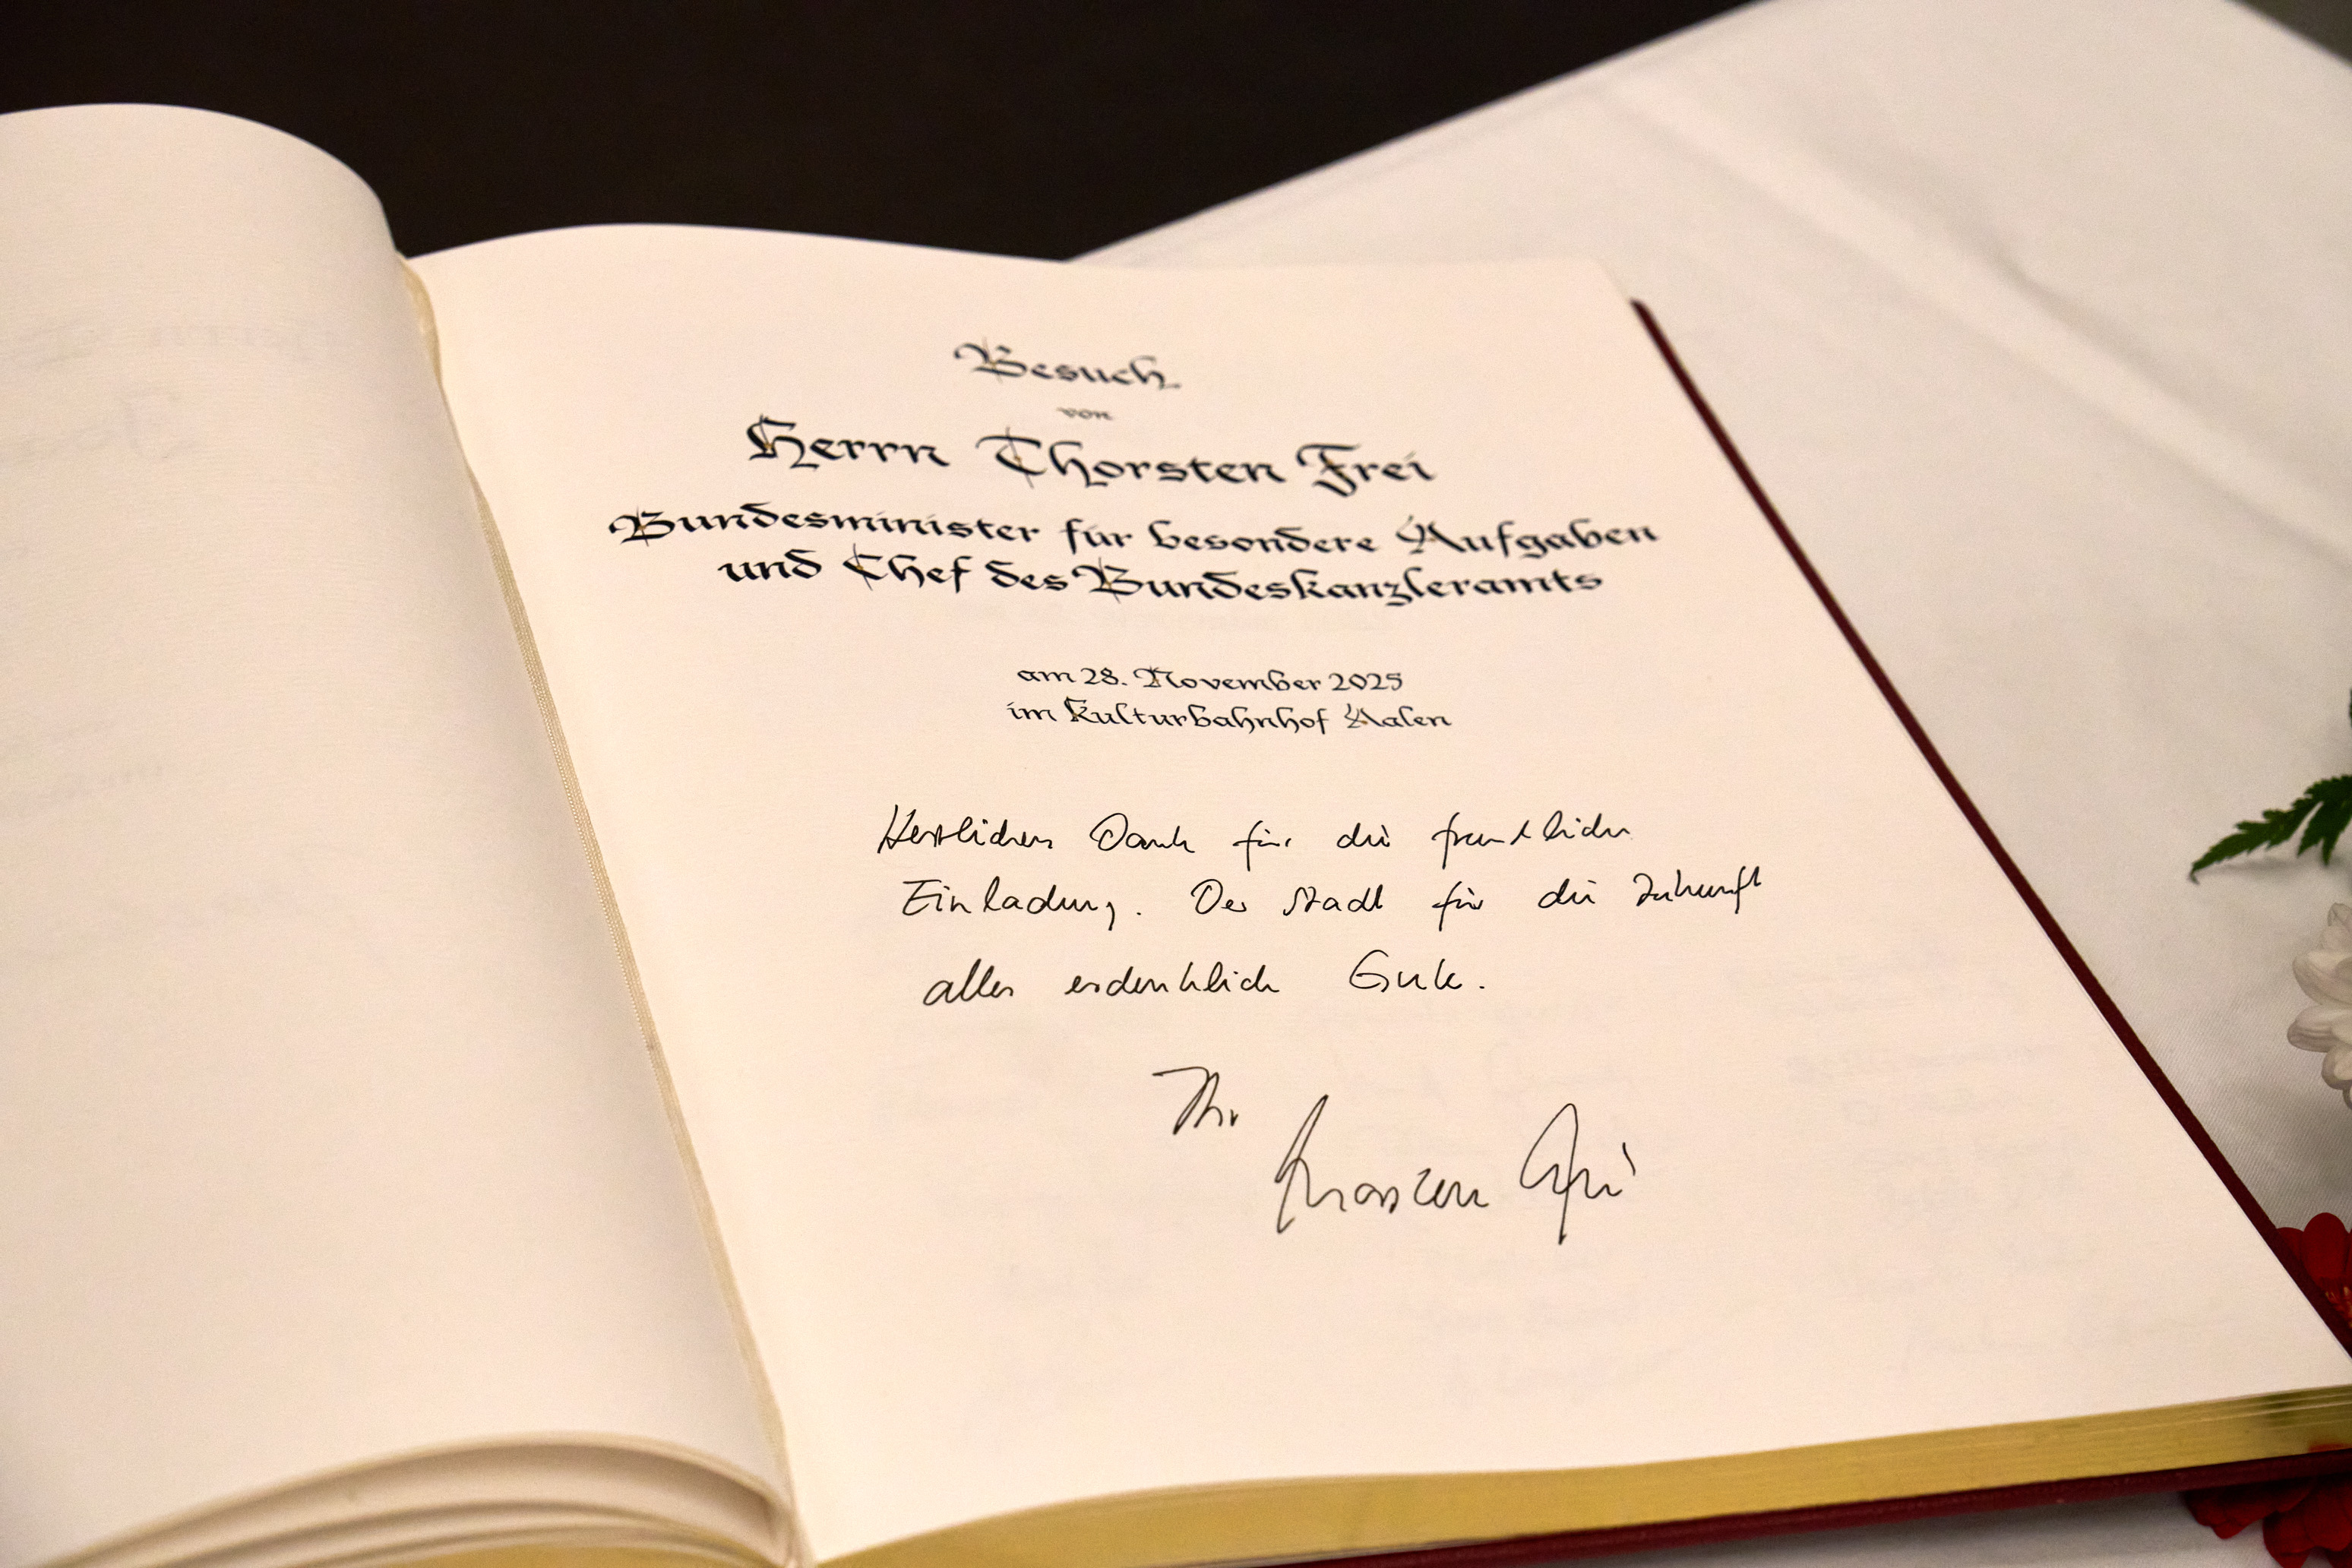 Besuch
von
Herrn Thorsten Frei
Bundesminister für besondere Aufgaben
und Chef des Bundeskanzleramts
am 28. November 2025
im Kulturbahnhof Aalen
Herzlichen Dank für die freundliche
Einladung. Der Stadt für die Zukunft
alles erdenklich Gute.
Ihr
Thorsten Frei